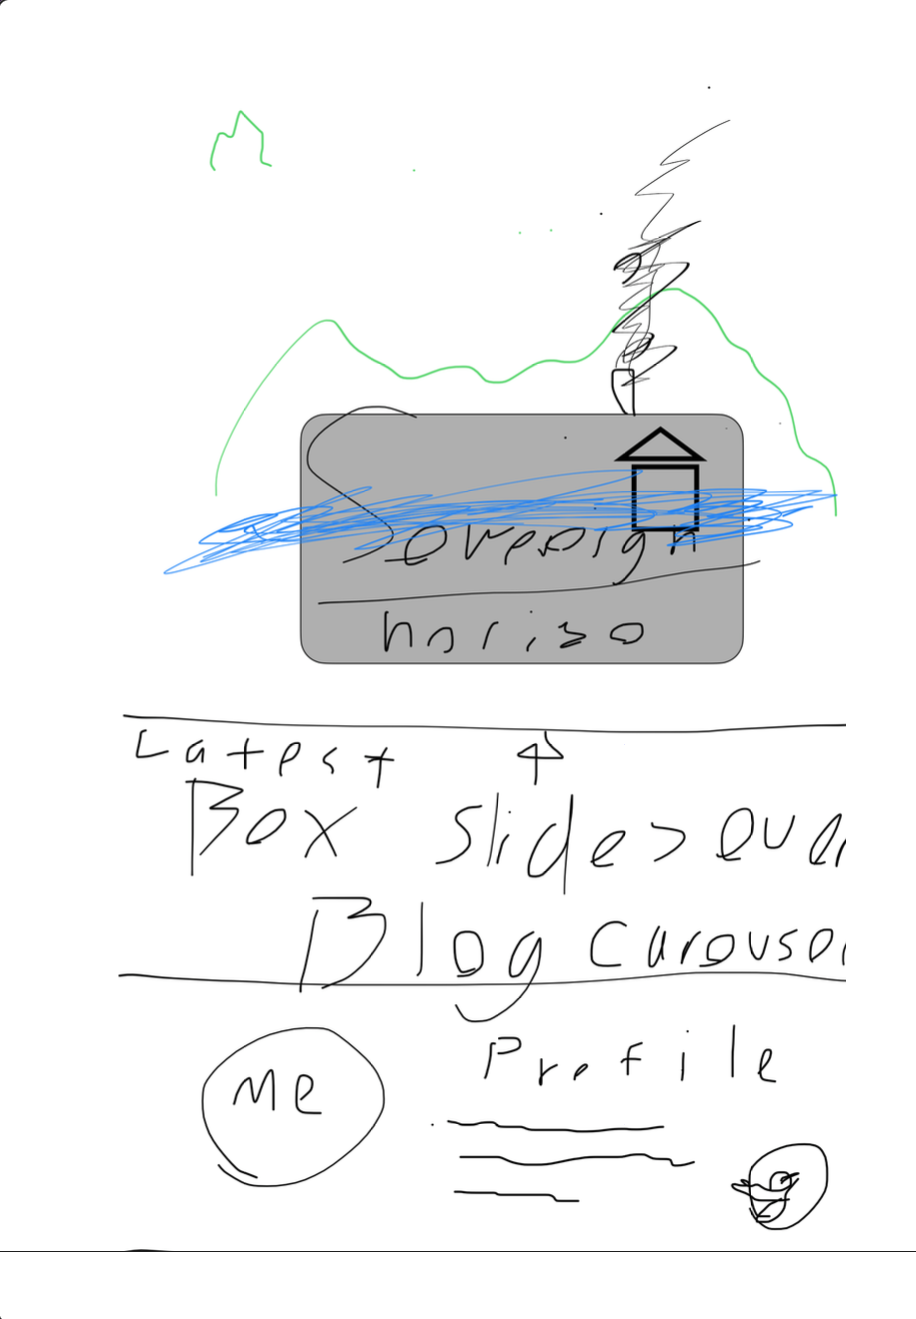 Sovereign
horizo
Latest
Box Slides
Blog Carousel
Me
Profile